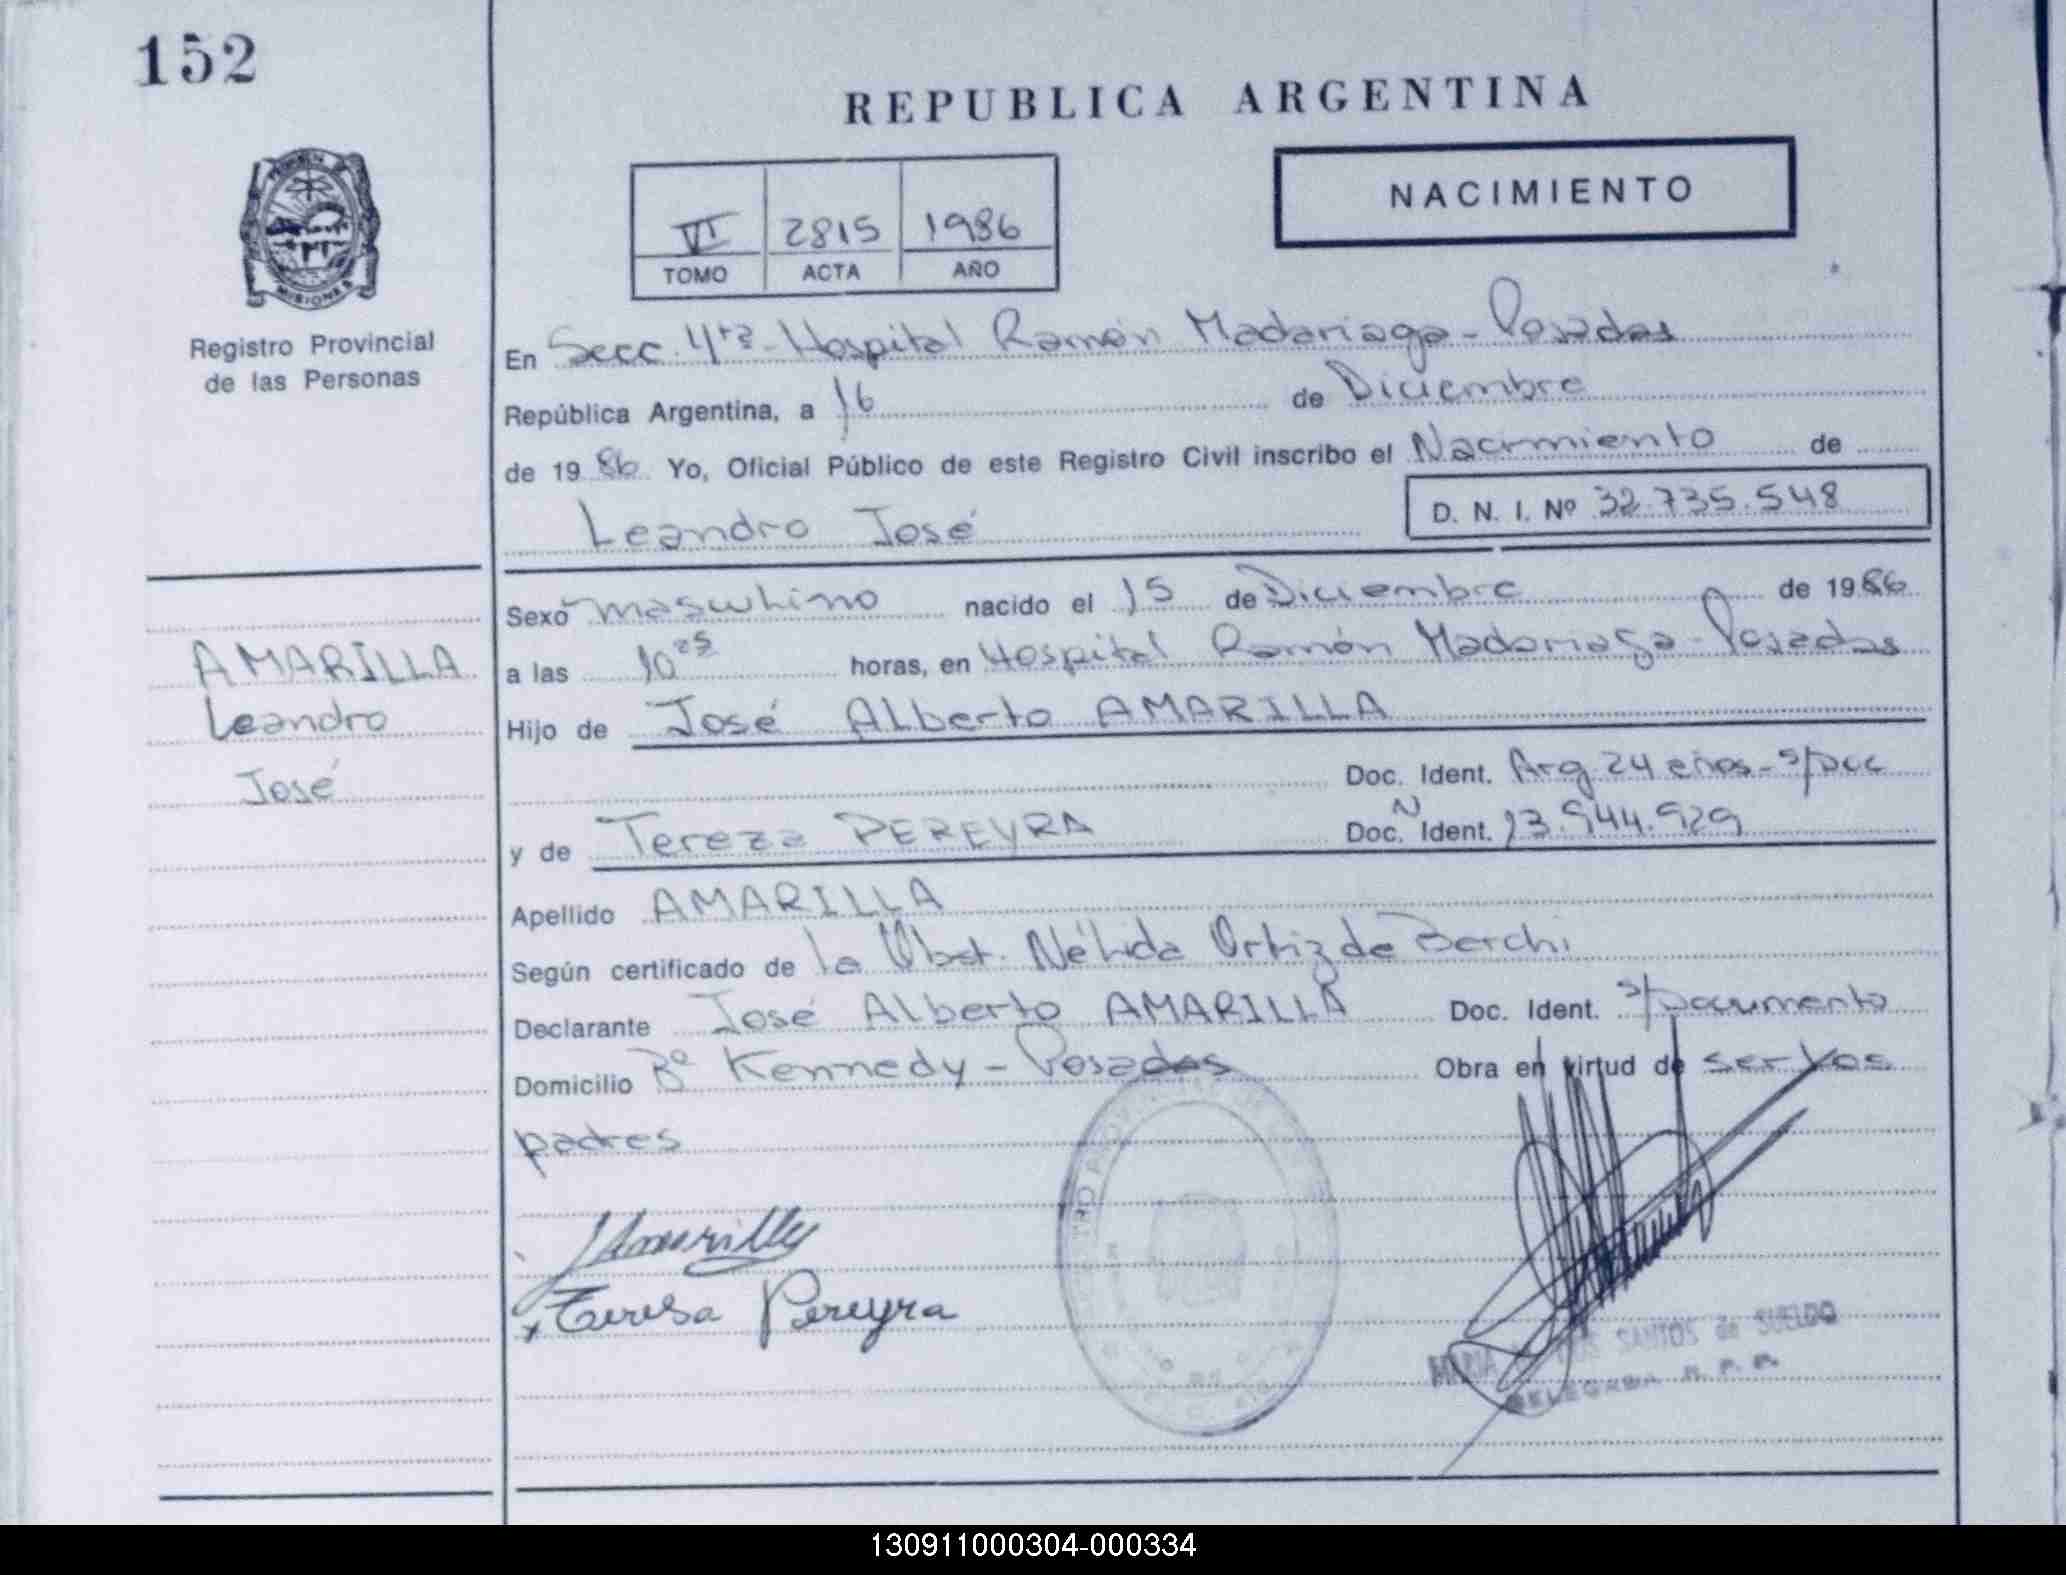 152
REPUBLICA ARGENTINA
NACIMIENTO
VI 2815 1986
TOMO ACTA AÑO
MISIONES
Registro Provincial
de las Personas
En Secc. 4ta - Hospital Ramón Madariaga - Posadas
República Argentina, a 16 de Diciembre
de 1986 Yo, Oficial Público de este Registro Civil inscribo el Nacimiento de
Leandro José D. N. I. Nº 32.735.548
Sexo masculino nacido el 15 de Diciembre de 1986
a las 10 horas, en Hospital Ramón Madariaga - Posadas
Hijo de José Alberto AMARILLA
Doc. Ident. Arg. 24 años - s/Doc
y de Tereza PEREYRA Doc. Ident. N 13.944.929
Apellido AMARILLA
Según certificado de la Obst. Nélida Ortiz de Berchi
Declarante José Alberto AMARILLA Doc. Ident. s/Documento
Domicilio Bº Kennedy - Posadas Obra en virtud de ser los
padres
AMARILLA
Leandro
José
JAmarilla
x Teresa Pereyra
MARIA SANTOS de SUELDO
DELEGADA R. P. P.
130911000304-000334